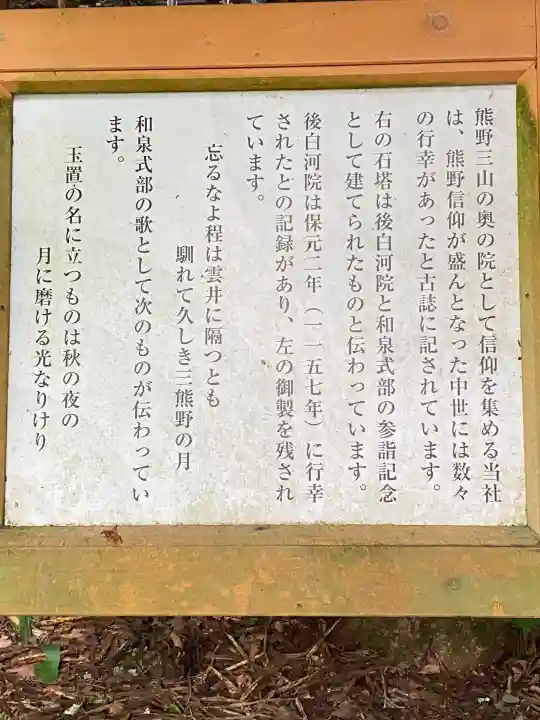 熊野三山の奥の院として信仰を集める当社
は、熊野信仰が盛んとなった中世には数々
の行幸があったと古誌に記されています。
右の石塔は後白河院と和泉式部の参詣記念
として建てられたものと伝わっています。
後白河院は保元二年（一一五七年）に行幸
されたとの記録があり、左の御製を残され
ています。
忘るなよ程は雲井に隔つとも
馴れて久しき三熊野の月
和泉式部の歌として次のものが伝わってい
ます。
玉置の名に立つものは秋の夜の
月に磨ける光なりけり